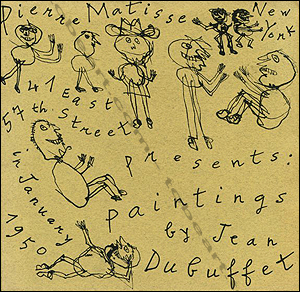 Pierre Matisse New York
41 East
57th. Street
presents:
in January
1950
paintings
by Jean
Dubuffet